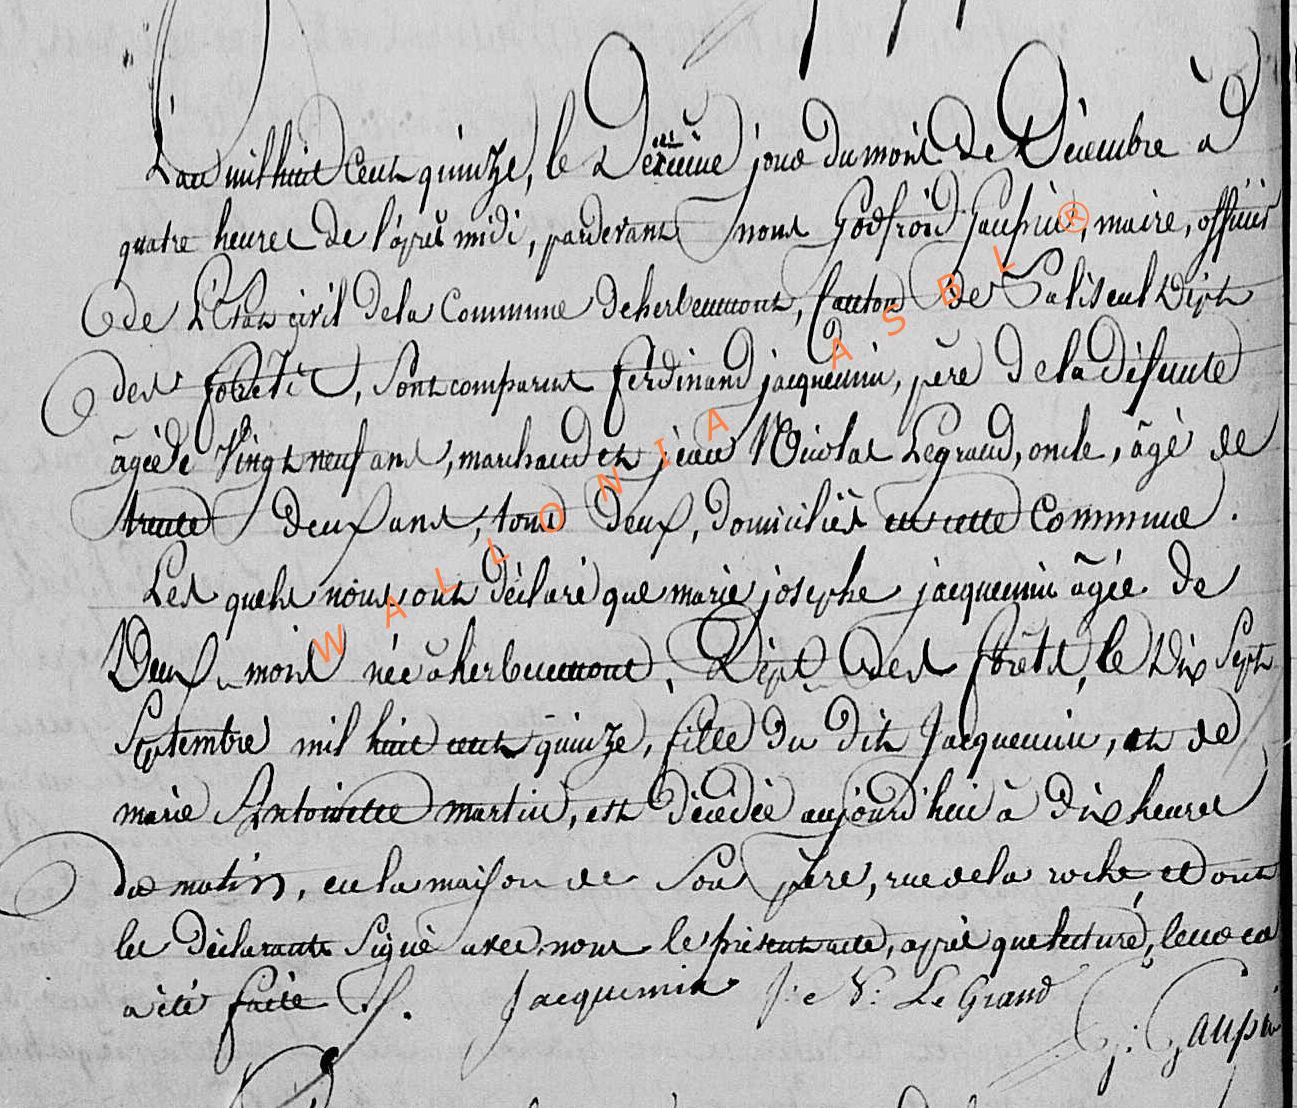 L'an mil huit Cent quinze, le Deuxième jour du mois de Décembre à
quatre heures de l'après midi, pardevant nous Godfroid Gaupin, maire, officier
de L'Etat civil de la Commune de herbeumont, Canton de Paliseul Dépt
des forêts, sont comparus ferdinand jacquemin, père de la Défunte
âgé de Vingt neuf ans, marchand et jean Nicolas Legrand, oncle, âgé de
trente deux ans, tous deux, domiciliés en cette Commune.
Les quels nous ont déclaré que marie josephe jacquemin âgée de
Deux mois née à herbeumont, Dépt des forêts, le Dix Sept
Septembre mil huit cent quinze, fille du dit Jacquemin, et de
marie Antoinette martin, est décédée aujourd'hui à dix heures
du matin, en la maison de Son père, rue de la roche et ont
les déclarants Signé avec nous le présent acte, après que lecture, leur en
a été faite.
Jacquemin J: N: Le Grand
G: Gaupin
WALLONIA ASBL ®